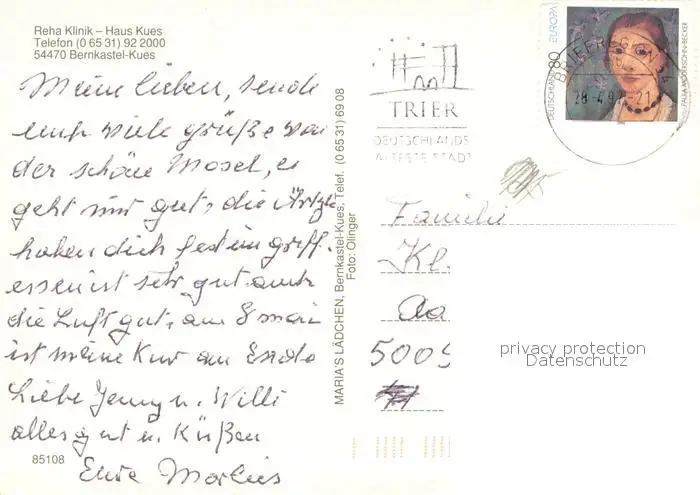 Reha Klinik – Haus Kues
Telefon (0 65 31) 92 2000
54470 Bernkastel-Kues
Meine lieben, sende
euch viele grüße von
der schöne Mosel, es
geht mir gut, die Ärtzte
haben dich fest im griff.
essen ist sehr gut auch
die Luft gut, am 8 mai
ist meine Kur am Ende
Liebe Jenny u. Willi
alles gut u. Küßen
Eure
85108
MARIA'S LÄDCHEN, Bernkastel-Kues, Telef. (0 65 31) 69 08
Foto: Olinger
TRIER
DEUTSCHLANDS
ÄLTESTE STADT
DEUTSCHLAND 80 EUROPA
PAULA MODERSOHN-BECKER
Familie
Kl.
Aa
5009
privacy protection
Datenschutz